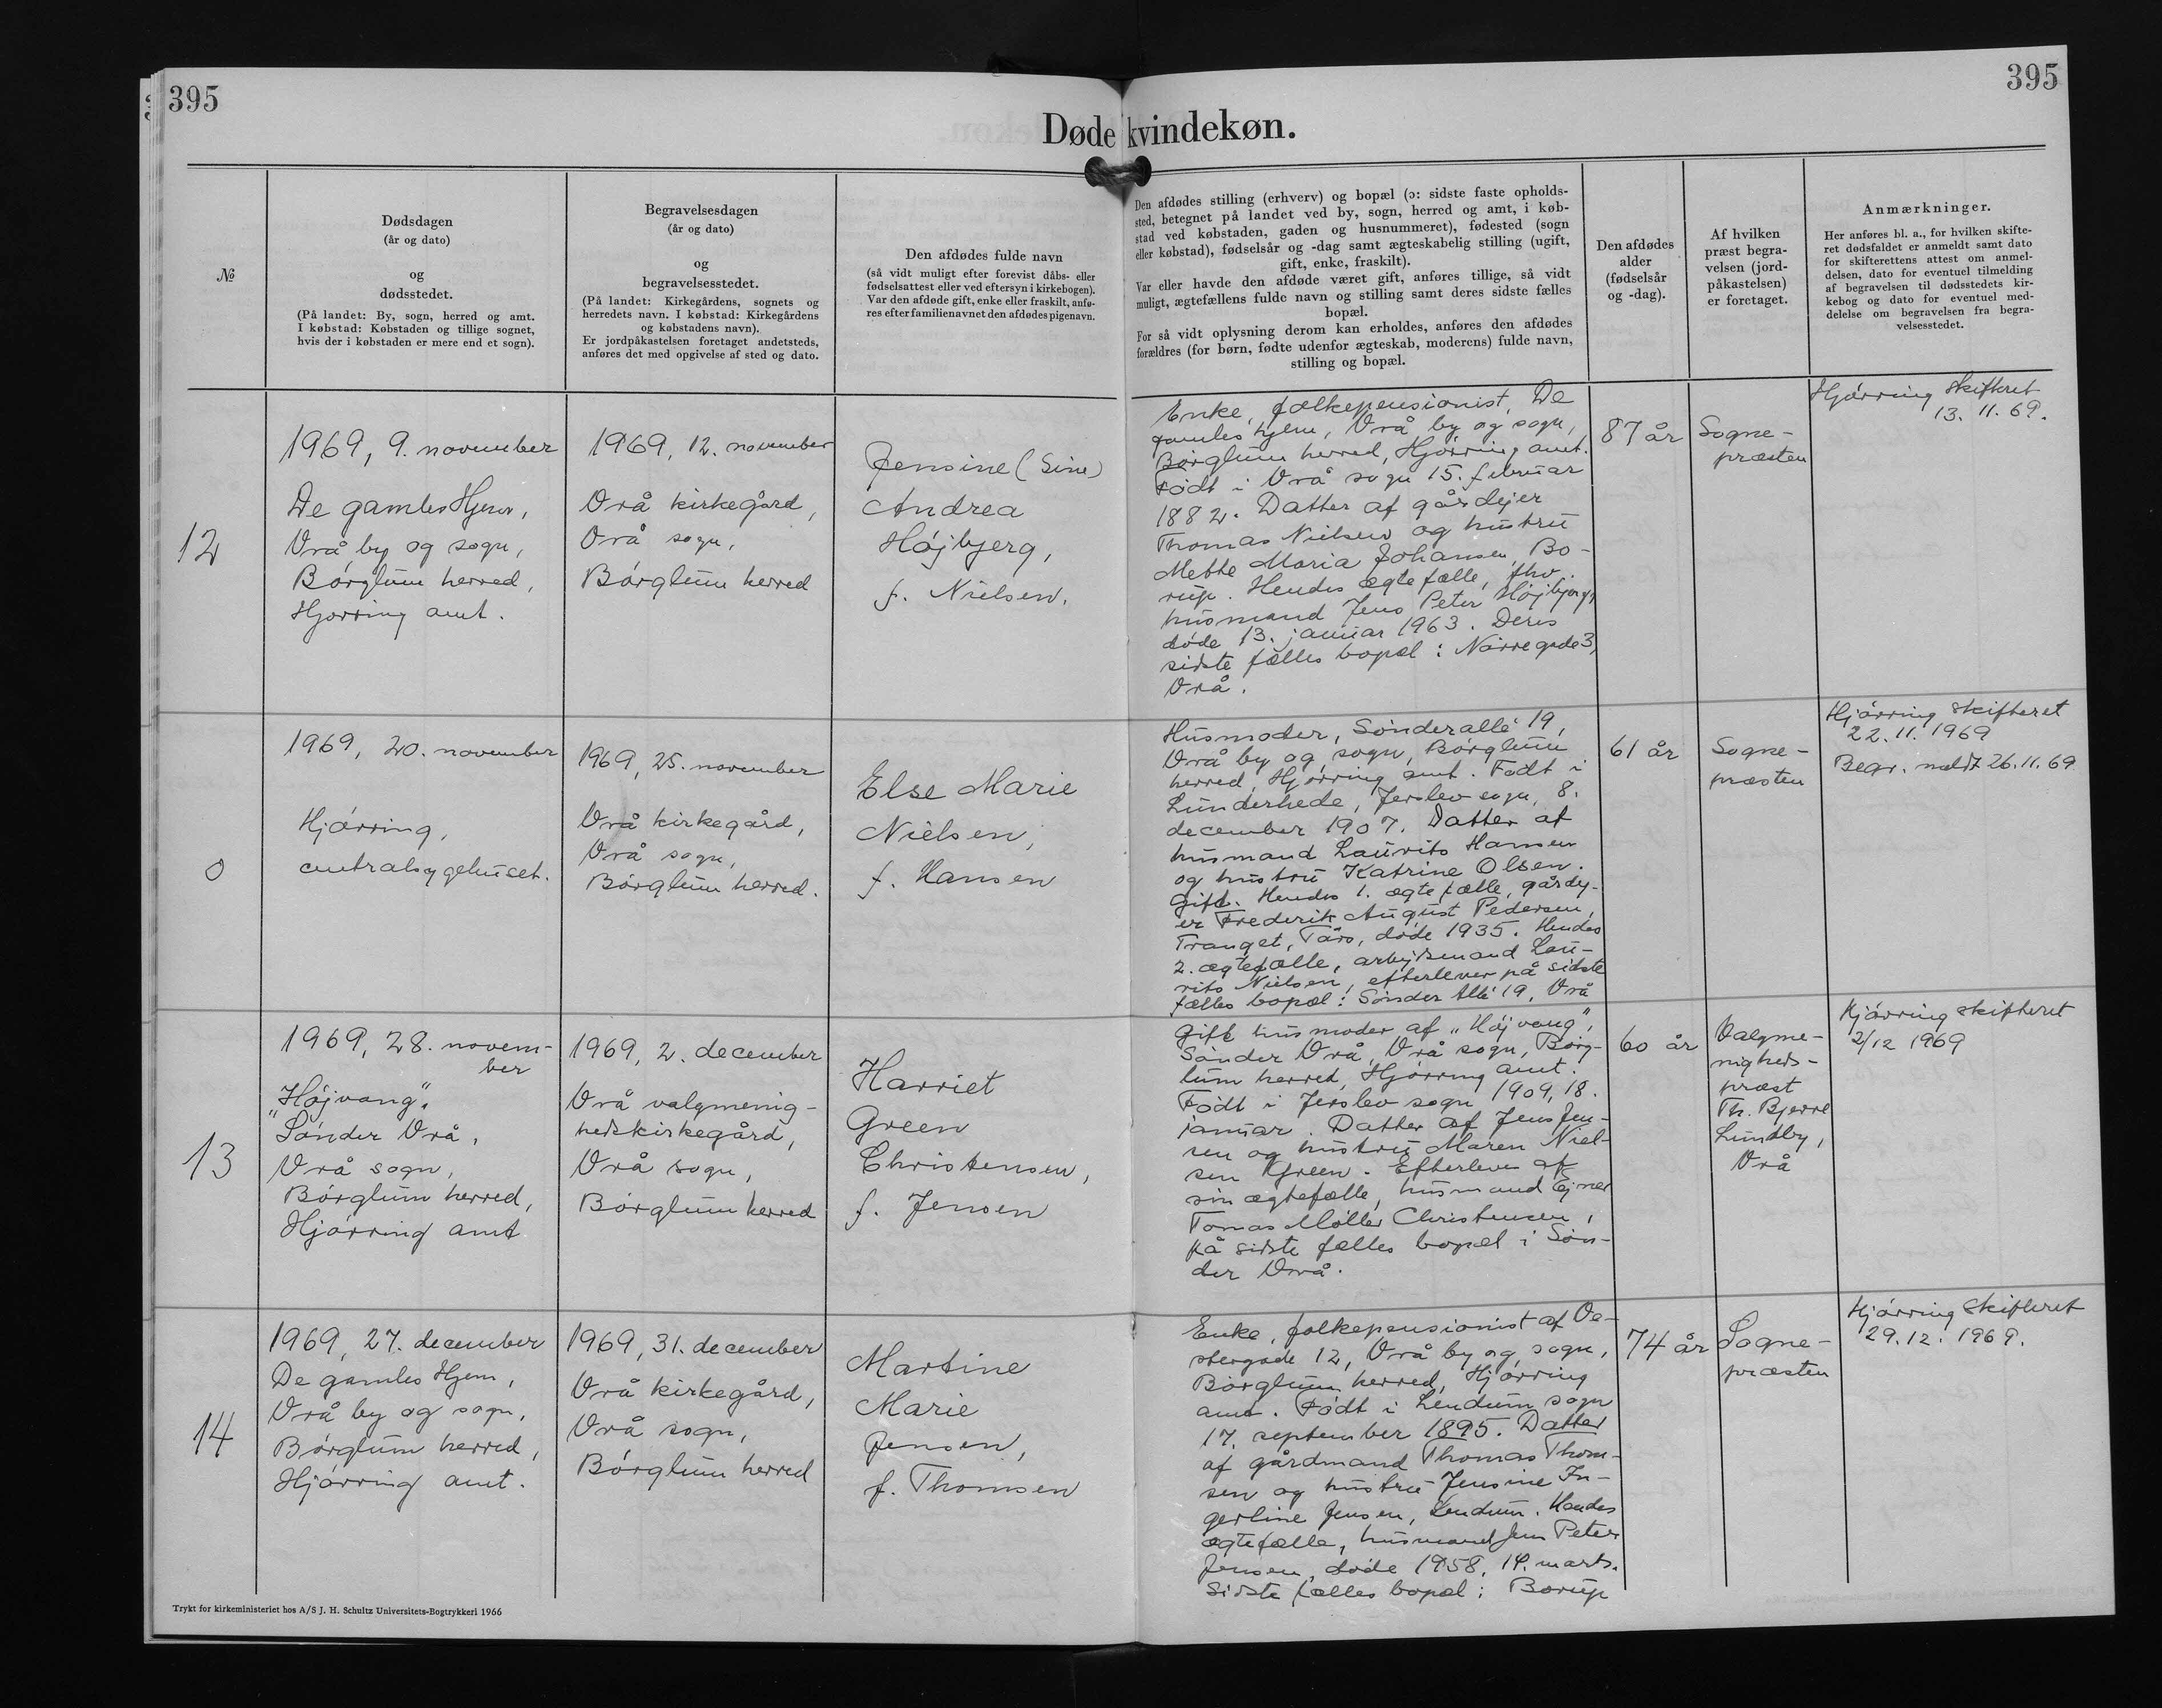 395
395
Døde kvindekøn.
№
Dødsdagen
(år og dato)
og
dødsstedet.
(På landet: By, sogn, herred og amt.
I købstad: Købstaden og tillige sognet,
hvis der i købstaden er mere end et sogn).
Begravelsesdagen
(år og dato)
og
begravelsesstedet.
(På landet: Kirkegårdens, sognets og
herredets navn. I købstad: Kirkegårdens
og købstadens navn).
Er jordpåkastelsen foretaget andetsteds,
anføres det med opgivelse af sted og dato.
Den afdødes fulde navn
(så vidt muligt efter forevist dåbs- eller
fødselsattest eller ved eftersyn i kirkebogen).
Var den afdøde gift, enke eller fraskilt, anfø-
res efter familienavnet den afdødes pigenavn.
Den afdødes stilling (erhverv) og bopæl (ɔ: sidste faste opholds-
sted, betegnet på landet ved by, sogn, herred og amt, i køb-
stad ved købstaden, gaden og husnummeret), fødested (sogn
eller købstad), fødselsår og -dag samt ægteskabelig stilling (ugift,
gift, enke, fraskilt).
Var eller havde den afdøde været gift, anføres tillige, så vidt
muligt, ægtefællens fulde navn og stilling samt deres sidste fælles
bopæl.
For så vidt oplysning derom kan erholdes, anføres den afdødes
forældres (for børn, fødte udenfor ægteskab, moderens) fulde navn,
stilling og bopæl.
Den afdødes
alder
(fødselsår
og -dag).
Af hvilken
præst begra-
velsen (jord-
påkastelsen)
er foretaget.
Anmærkninger.
Her anføres bl. a., for hvilken skifte-
ret dødsfaldet er anmeldt samt dato
for skifterettens attest om anmel-
delsen, dato for eventuel tilmelding
af begravelsen til dødsstedets kir-
kebog og dato for eventuel med-
delelse om begravelsen fra begra-
velsesstedet.
12
1969, 9. november
De gamles Hjem,
Vrå by og sogn,
Børglum herred,
Hjørring amt.
1969, 12. november
Vrå kirkegård,
Vrå sogn,
Børglum herred
Jensine (Sine)
Andrea
Højbjerg,
f. Nielsen.
Enke, folkepensionist, De
gamles hjem, Vrå by og sogn,
Børglum herred, Hjørring amt.
Født i Vrå sogn 15. februar
1882. Datter af gårdejer
Thomas Nielsen og hustru
Mette Maria Johansen, Bo-
rup. Hendes ægtefælle, fhv.
husmand Jens Peter Højbjerg,
døde 13. januar 1963. Deres
sidste fælles bopæl: Nørregade 3,
Vrå.
87 år
Sogne-
præsten
Hjørring skifteret
13. 11. 69.
0
1969, 20. november
Hjørring,
centralsygehuset.
1969, 25. november
Vrå kirkegård,
Vrå sogn,
Børglum herred.
Else Marie
Nielsen,
f. Hansen
Husmoder, Sønderallé 19,
Vrå by og sogn, Børglum
herred, Hjørring amt. Født i
Lunderhede, Jerslev sogn, 8.
december 1907. Datter af
husmand Laurits Hansen
og hustru Katrine Olsen.
Gift. Hendes 1. ægtefælle, gårdej-
er Frederik August Pedersen,
Tranget, Tårs, døde 1935. Hendes
2. ægtefælle, arbejdsmand Lau-
rits Nielsen, efterlever på sidste
fælles bopæl: Sønder Allé 19, Vrå
61 år
Sogne-
præsten
Hjørring skifteret
22. 11. 1969
Begr. meldt 26. 11. 69
13
1969, 28. novem-
ber
"Højvang",
Sønder Vrå,
Vrå sogn,
Børglum herred,
Hjørring amt
1969, 2. december
Vrå valgmenig-
hedskirkegård,
Vrå sogn,
Børglum herred
Harriet
Green
Christensen,
f. Jensen
Gift husmoder af "Højvang",
Sønder Vrå, Vrå sogn, Børg-
lum herred, Hjørring amt.
Født i Jerslev sogn 1909, 18.
januar. Datter af Jens Jen-
sen og hustru Maren Niel-
sen Green. Efterleves af
sin ægtefælle, husmand Ejner
Tomas Møller Christensen,
på sidste fælles bopæl i Søn-
der Vrå.
60 år
Valgme-
nigheds-
præst
Th. Bjerre
Lundby,
Vrå
Hjørring skifteret
2/12 1969
14
1969, 27. december
De gamles Hjem,
Vrå by og sogn,
Børglum herred,
Hjørring amt.
1969, 31. december
Vrå kirkegård,
Vrå sogn,
Børglum herred
Martine
Marie
Jensen,
f. Thomsen
Enke, folkepensionist af Ve-
stergade 12, Vrå by og sogn,
Børglum herred, Hjørring
amt. Født i Lendum sogn
17. september 1895. Datter
af gårdmand Thomas Thom-
sen og hustru Jensine In-
gerline Jensen, Lendum. Hendes
ægtefælle, husmand Jens Peter
Jensen, døde 1958, 14. marts.
Sidste fælles bopæl: Borup
74 år
Sogne-
præsten
Hjørring Skifteret
29. 12. 1969.
Trykt for kirkeministeriet hos A/S J. H. Schultz Universitets-Bogtrykkeri 1966